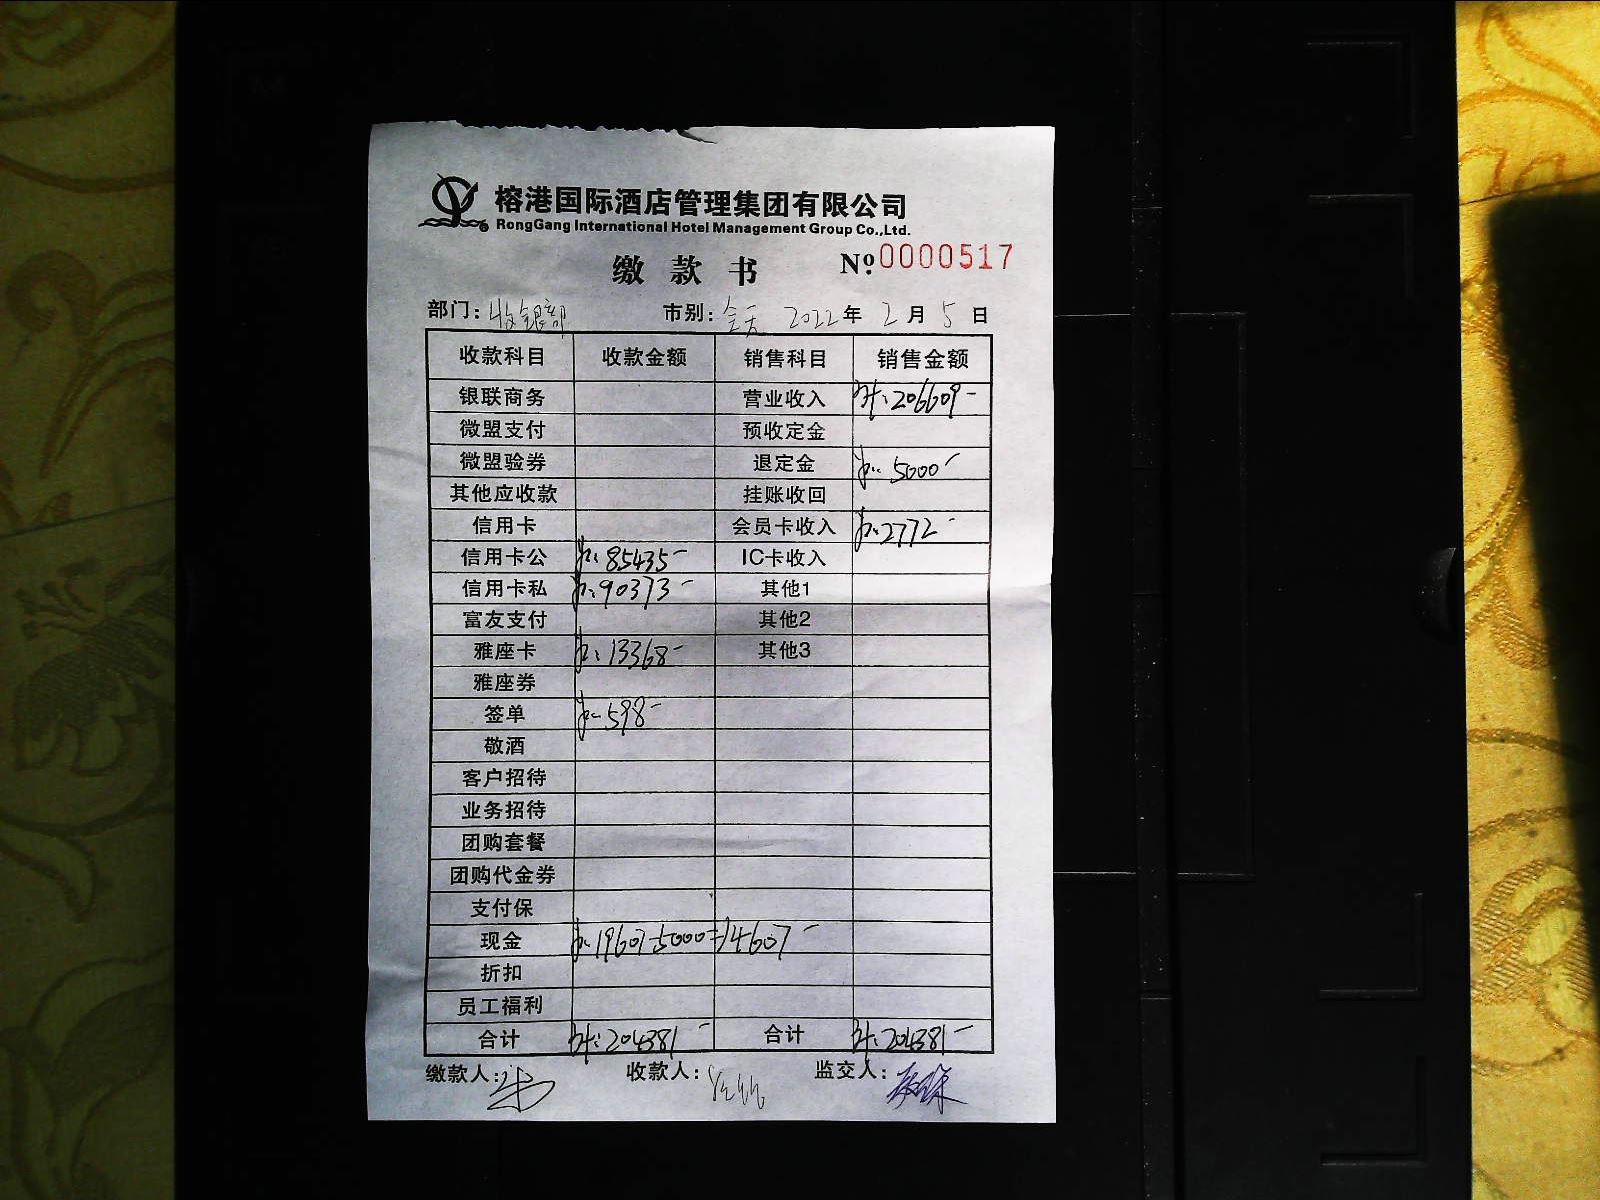 榕港国际酒店管理集团有限公司
RongGang International Hotel Management Group Co.,Ltd.
缴款书 Nº 0000517
部门：收银部 市别：全天 2022年2月5日
收款科目 收款金额 销售科目 销售金额
银联商务 营业收入 206609-
微盟支付 预收定金
微盟验券 退定金 5000-
其他应收款 挂账收回
信用卡 会员卡收入 2772-
信用卡公 85435- IC卡收入
信用卡私 90373- 其他1
富友支付 其他2
雅座卡 13368- 其他3
雅座券
签单 598-
敬酒
客户招待
业务招待
团购套餐
团购代金券
支付保
现金 19607-5000=14607-
折扣
员工福利
合计 204381- 合计 204381-
缴款人： 收款人： 监交人：